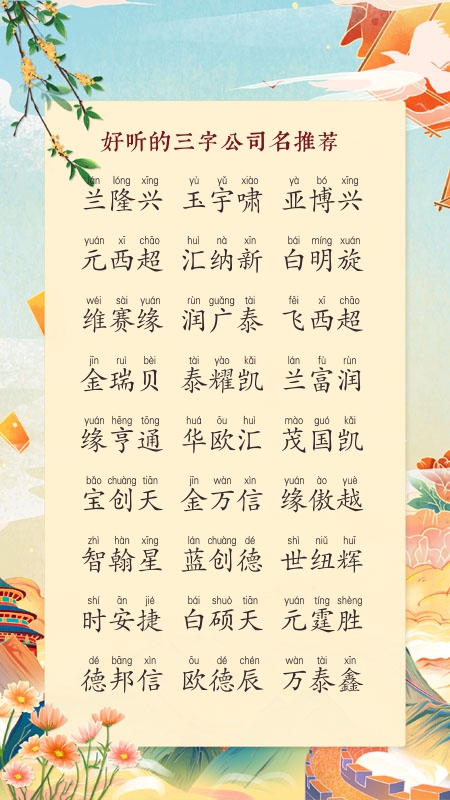 好听的三字公司名推荐
lán lóng xīng yù yǔ xiào yà bó xīng
兰隆兴 玉宇啸 亚博兴
yuán xī chāo huì nà xīn bái míng xuán
元西超 汇纳新 白明旋
wéi sài yuán rùn guǎng tài fēi xī chāo
维赛缘 润广泰 飞西超
jīn ruì bèi tài yào kǎi lán fù rùn
金瑞贝 泰耀凯 兰富润
yuán hēng tōng huá ōu huì mào guó kǎi
缘亨通 华欧汇 茂国凯
bǎo chuàng tiān jīn wàn xìn yuán ào yuè
宝创天 金万信 缘傲越
zhì hàn xīng lán chuàng dé shì niǔ huī
智翰星 蓝创德 世纽辉
shí ān jié bái shuò tiān yuán tíng shèng
时安捷 白硕天 元霆胜
dé bāng xìn ōu dé chén wàn tài xīn
德邦信 欧德辰 万泰鑫